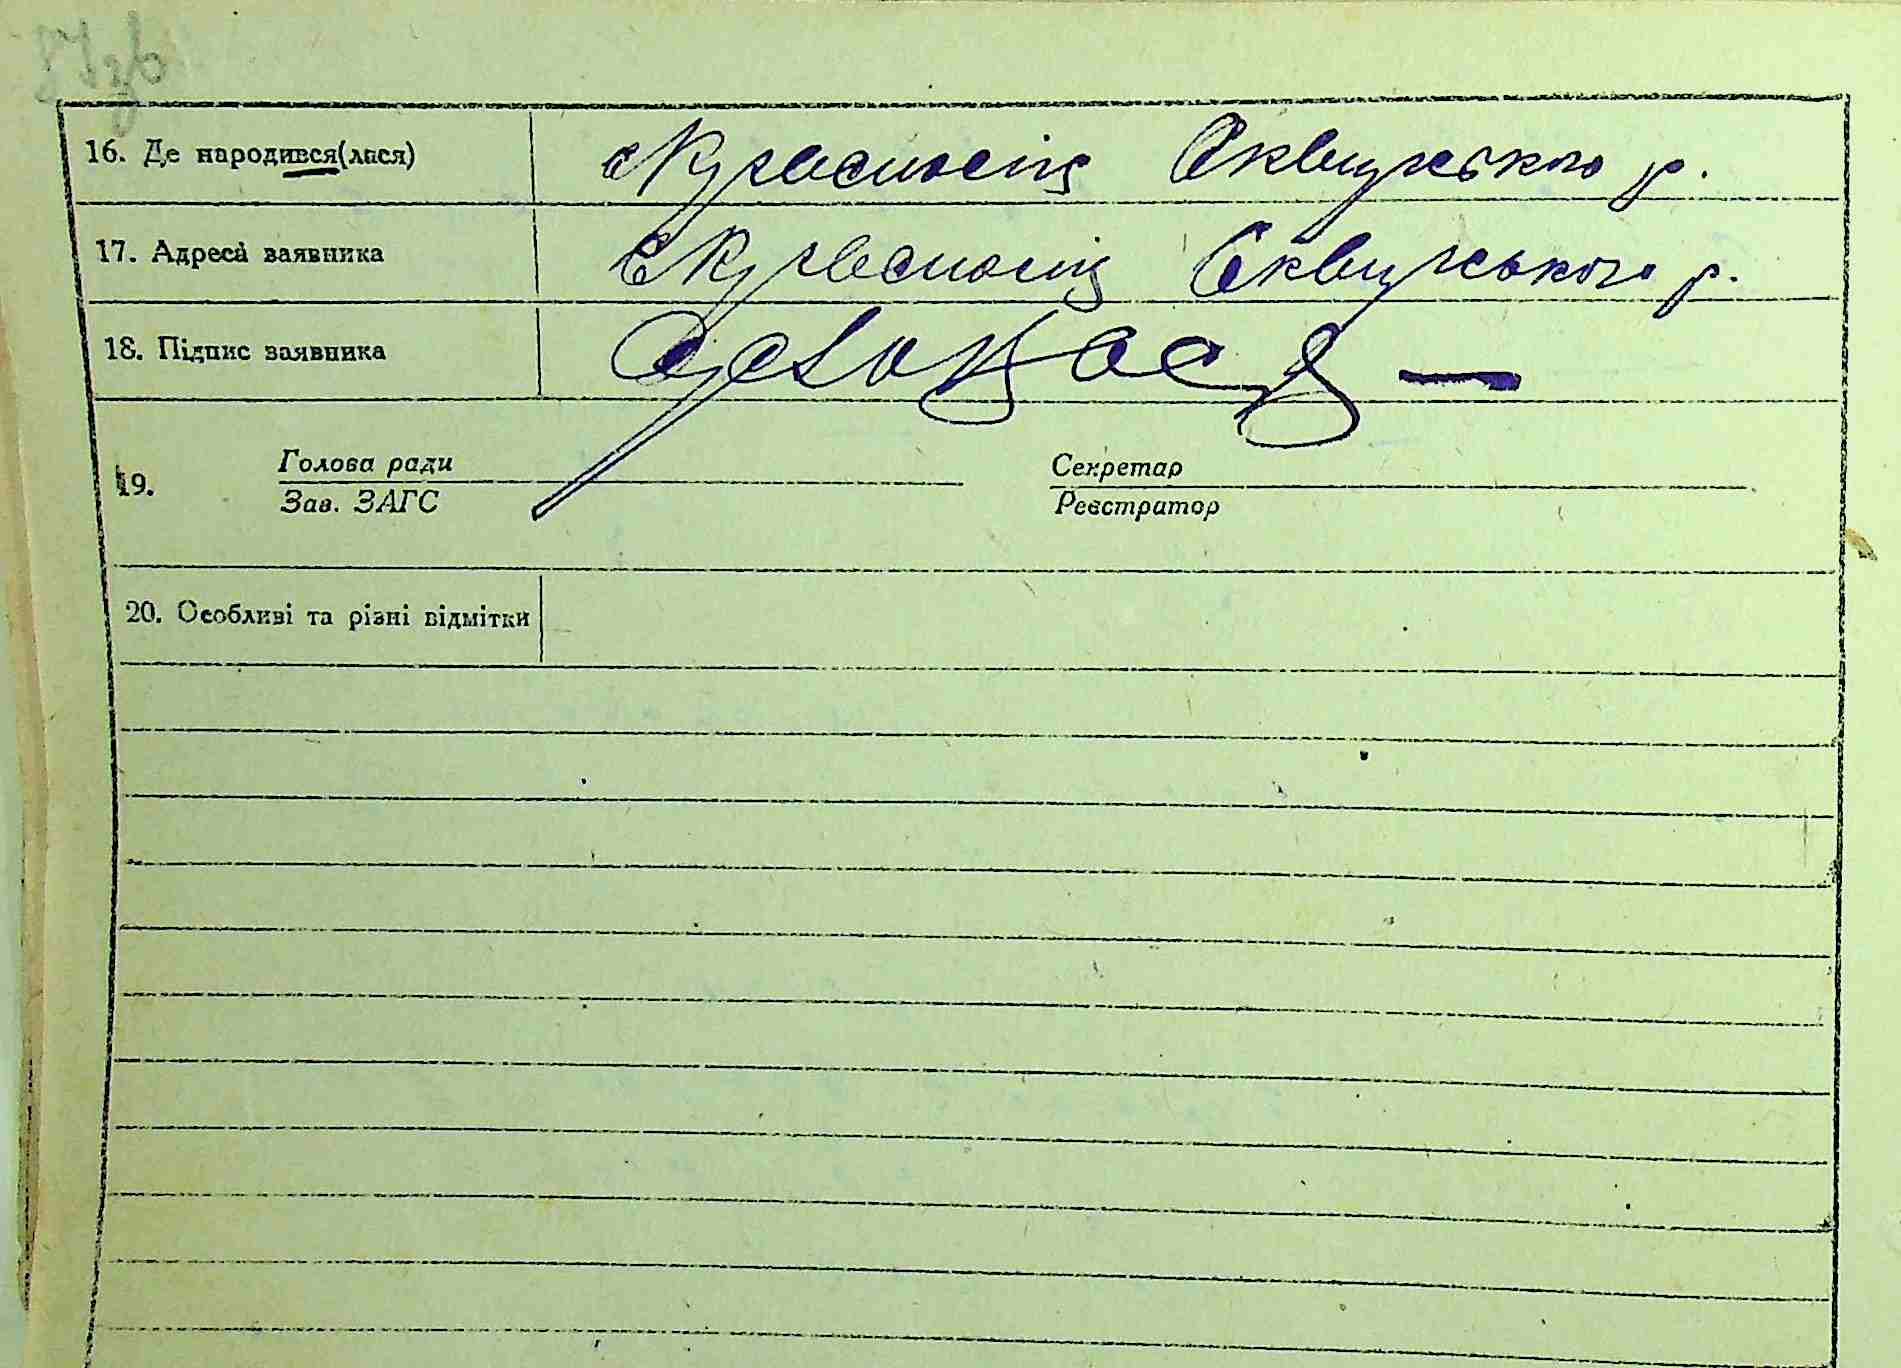 16. Де народився(лася) Кривошеїнці Сквирського р.
17. Адреса заявника Кривошеїнці Сквирського р.
18. Підпис заявника
19. Голова ради Секретар
Зав. ЗАГС Реєстратор
20. Особливі та різні відмітки